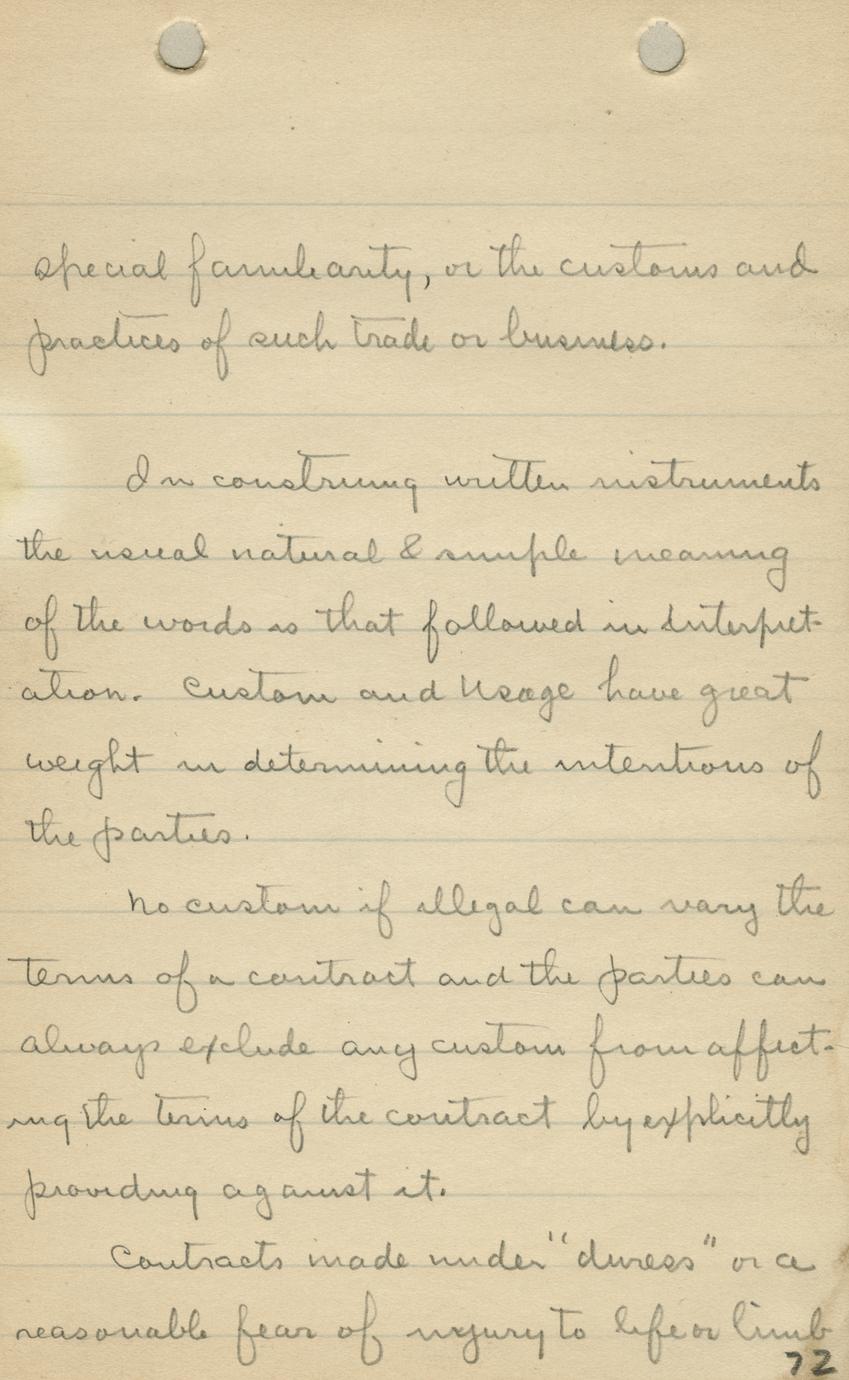 special familiarity, or the customs and
practices of such trade or business.
In construing written instruments
the usual natural & simple meaning
of the words is that followed in interpret-
ation. Custom and Usage have great
weight in determining the intentions of
the parties.
No custom if illegal can vary the
terms of a contract and the parties can
always exclude any custom from affect-
ing the terms of the contract by explicitly
providing against it.
Contracts made under "duress" or a
reasonable fear of injury to life or limb
72